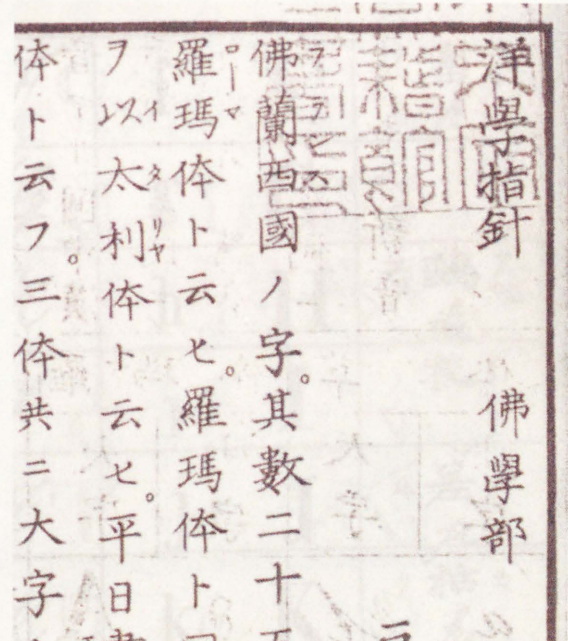 洋學指針　佛學部
佛蘭西國ノ字。其數二十
羅瑪体ト云ヒ。羅瑪体ト
ヲ以太利体ト云ヒ。平日
体ト云フ。三体共ニ大字